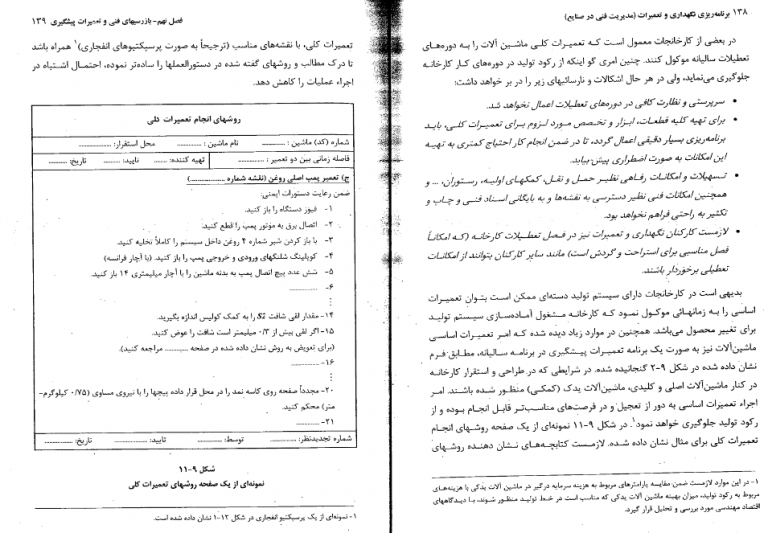 ۱۳۸ برنامه‌ریزی نگهداری و تعمیرات (مدیریت فنی در صنایع)
در بعضی از کارخانجات معمول است که تعمیرات کلی ماشین آلات را به دوره‌های
تعطیلات سالیانه موکول کنند. چنین امری گو اینکه از رکود تولید در دوره‌های کار کارخانه
جلوگیری می‌نماید، ولی در هر حال اشکالات و نارسائیهای زیر را در بر خواهد داشت:
• سرپرستی و نظارت کافی در دوره‌های تعطیلات اعمال نخواهد شد.
• برای تهیه کلیه قطعات، ابزار و تخصص مورد لزوم برای تعمیرات کلی، باید
برنامه‌ریزی بسیار دقیقی اعمال گردد، تا در ضمن انجام کار احتیاج کمتری به تهیه
این امکانات به صورت اضطراری پیش بیاید.
• تسهیلات و امکانات رفاهی نظیر حمل و نقل، کمکهای اولیه، رستوران، ... و
همچنین امکانات فنی نظیر دسترسی به نقشه‌ها و به بایگانی اسناد فنی و چاپ و
تکثیر به راحتی فراهم نخواهد بود.
• لازمست کارکنان نگهداری و تعمیرات نیز در فصل تعطیلات کارخانه (که امکاناً
فصل مناسبی برای استراحت و گردش است) مانند سایر کارکنان بتوانند از امکانات
تعطیلی برخوردار باشند.
بدیهی است در کارخانجات دارای سیستم تولید دسته‌ای ممکن است بتوان تعمیرات
اساسی را به زمانهائی موکول نمود که کارخانه مشغول آماده‌سازی سیستم تولید
برای تغییر محصول می‌باشد. همچنین در موارد زیاد دیده شده که امر تعمیرات اساسی
ماشین‌آلات نیز به صورت یک برنامه تعمیرات پیشگیری در برنامه سالیانه، مطابق فرم
نشان داده شده در شکل ۹-۲ گنجانیده شده. در شرایطی که در طراحی و استقرار کارخانه
در کنار ماشین‌آلات اصلی و کلیدی، ماشین‌آلات یدک (کمکی) منظور شده باشند. امر
اجراء تعمیرات اساسی به دور از تعجیل و در فرصت‌های مناسب‌تر قابل انجام بوده و از
رکود تولید جلوگیری خواهد نمود۱. در شکل ۹-۱۱ نمونه‌ای از یک صفحه روشهای انجام
تعمیرات کلی برای مثال نشان داده شده. لازمست کتابچه‌های نشان دهنده روشهای
۱- در این موارد لازمست ضمن مقایسه پارامترهای مربوط به هزینه سرمایه درگیر در ماشین آلات یدکی با هزینه‌های
مربوط به رکود تولید، میزان بهینه ماشین آلات یدکی که مناسب است در خط تولید منظور شوند، با دیدگاههای
اقتصاد مهندسی مورد بررسی و تحلیل قرار گیرد.
فصل نهم- بازرسیهای فنی و تعمیرات پیشگیری ۱۳۹
تعمیرات کلی، با نقشه‌های مناسب (ترجیحاً به صورت پرسپکتیوهای انفجاری)۱ همراه باشد
تا درک مطالب و روشهای گفته شده در دستورالعملها را ساده‌تر نموده، احتمال اشتباه در
اجراء عملیات را کاهش دهد.
روشهای انجام تعمیرات کلی
شماره (کد) ماشین: ........ نام ماشین: ........ محل استقرار: ........
فاصله زمانی بین دو تعمیر: ........ تهیه کننده: ........ تایید: ........ تاریخ: ........
ج) تعمیر پمپ اصلی روغن (نقشه شماره ........)
ضمن رعایت دستورات ایمنی:
۱- فیوز دستگاه را باز کنید.
۲- اتصال برق به موتور پمپ را قطع کنید.
۳- با باز کردن شیر شماره ۴ روغن داخل سیستم را کاملاً تخلیه کنید.
۴- کوپلینگ شلنگهای ورودی و خروجی پمپ را باز کنید. (با آچار فرانسه)
۵- شش عدد پیچ اتصال پمپ به بدنه ماشین را با آچار میلیمتری ۱۴ باز کنید.
۶- ........
۱۴- مقدار لقی شافت S2 را به کمک کولیس اندازه بگیرید.
۱۵- اگر لقی بیش از ۰/۳ میلیمتر است شافت را عوض کنید.
(برای تعویض به روش نشان داده شده در صفحه ........ مراجعه کنید).
۱۶- ........
۲۰- مجدداً صفحه روی کاسه نمد را در محل قرار داده پیچها را با نیروی مساوی (۰/۷۵ کیلوگرم-
متر) محکم کنید.
۲۱- ........
شماره تجدیدنظر: ........ توسط: ........ تایید: ........ تاریخ: ........
شکل ۹-۱۱
نمونه‌ای از یک صفحه روشهای تعمیرات کلی
۱- نمونه‌ای از یک پرسپکتیو انفجاری در شکل ۱۲-۱ نشان داده شده است.